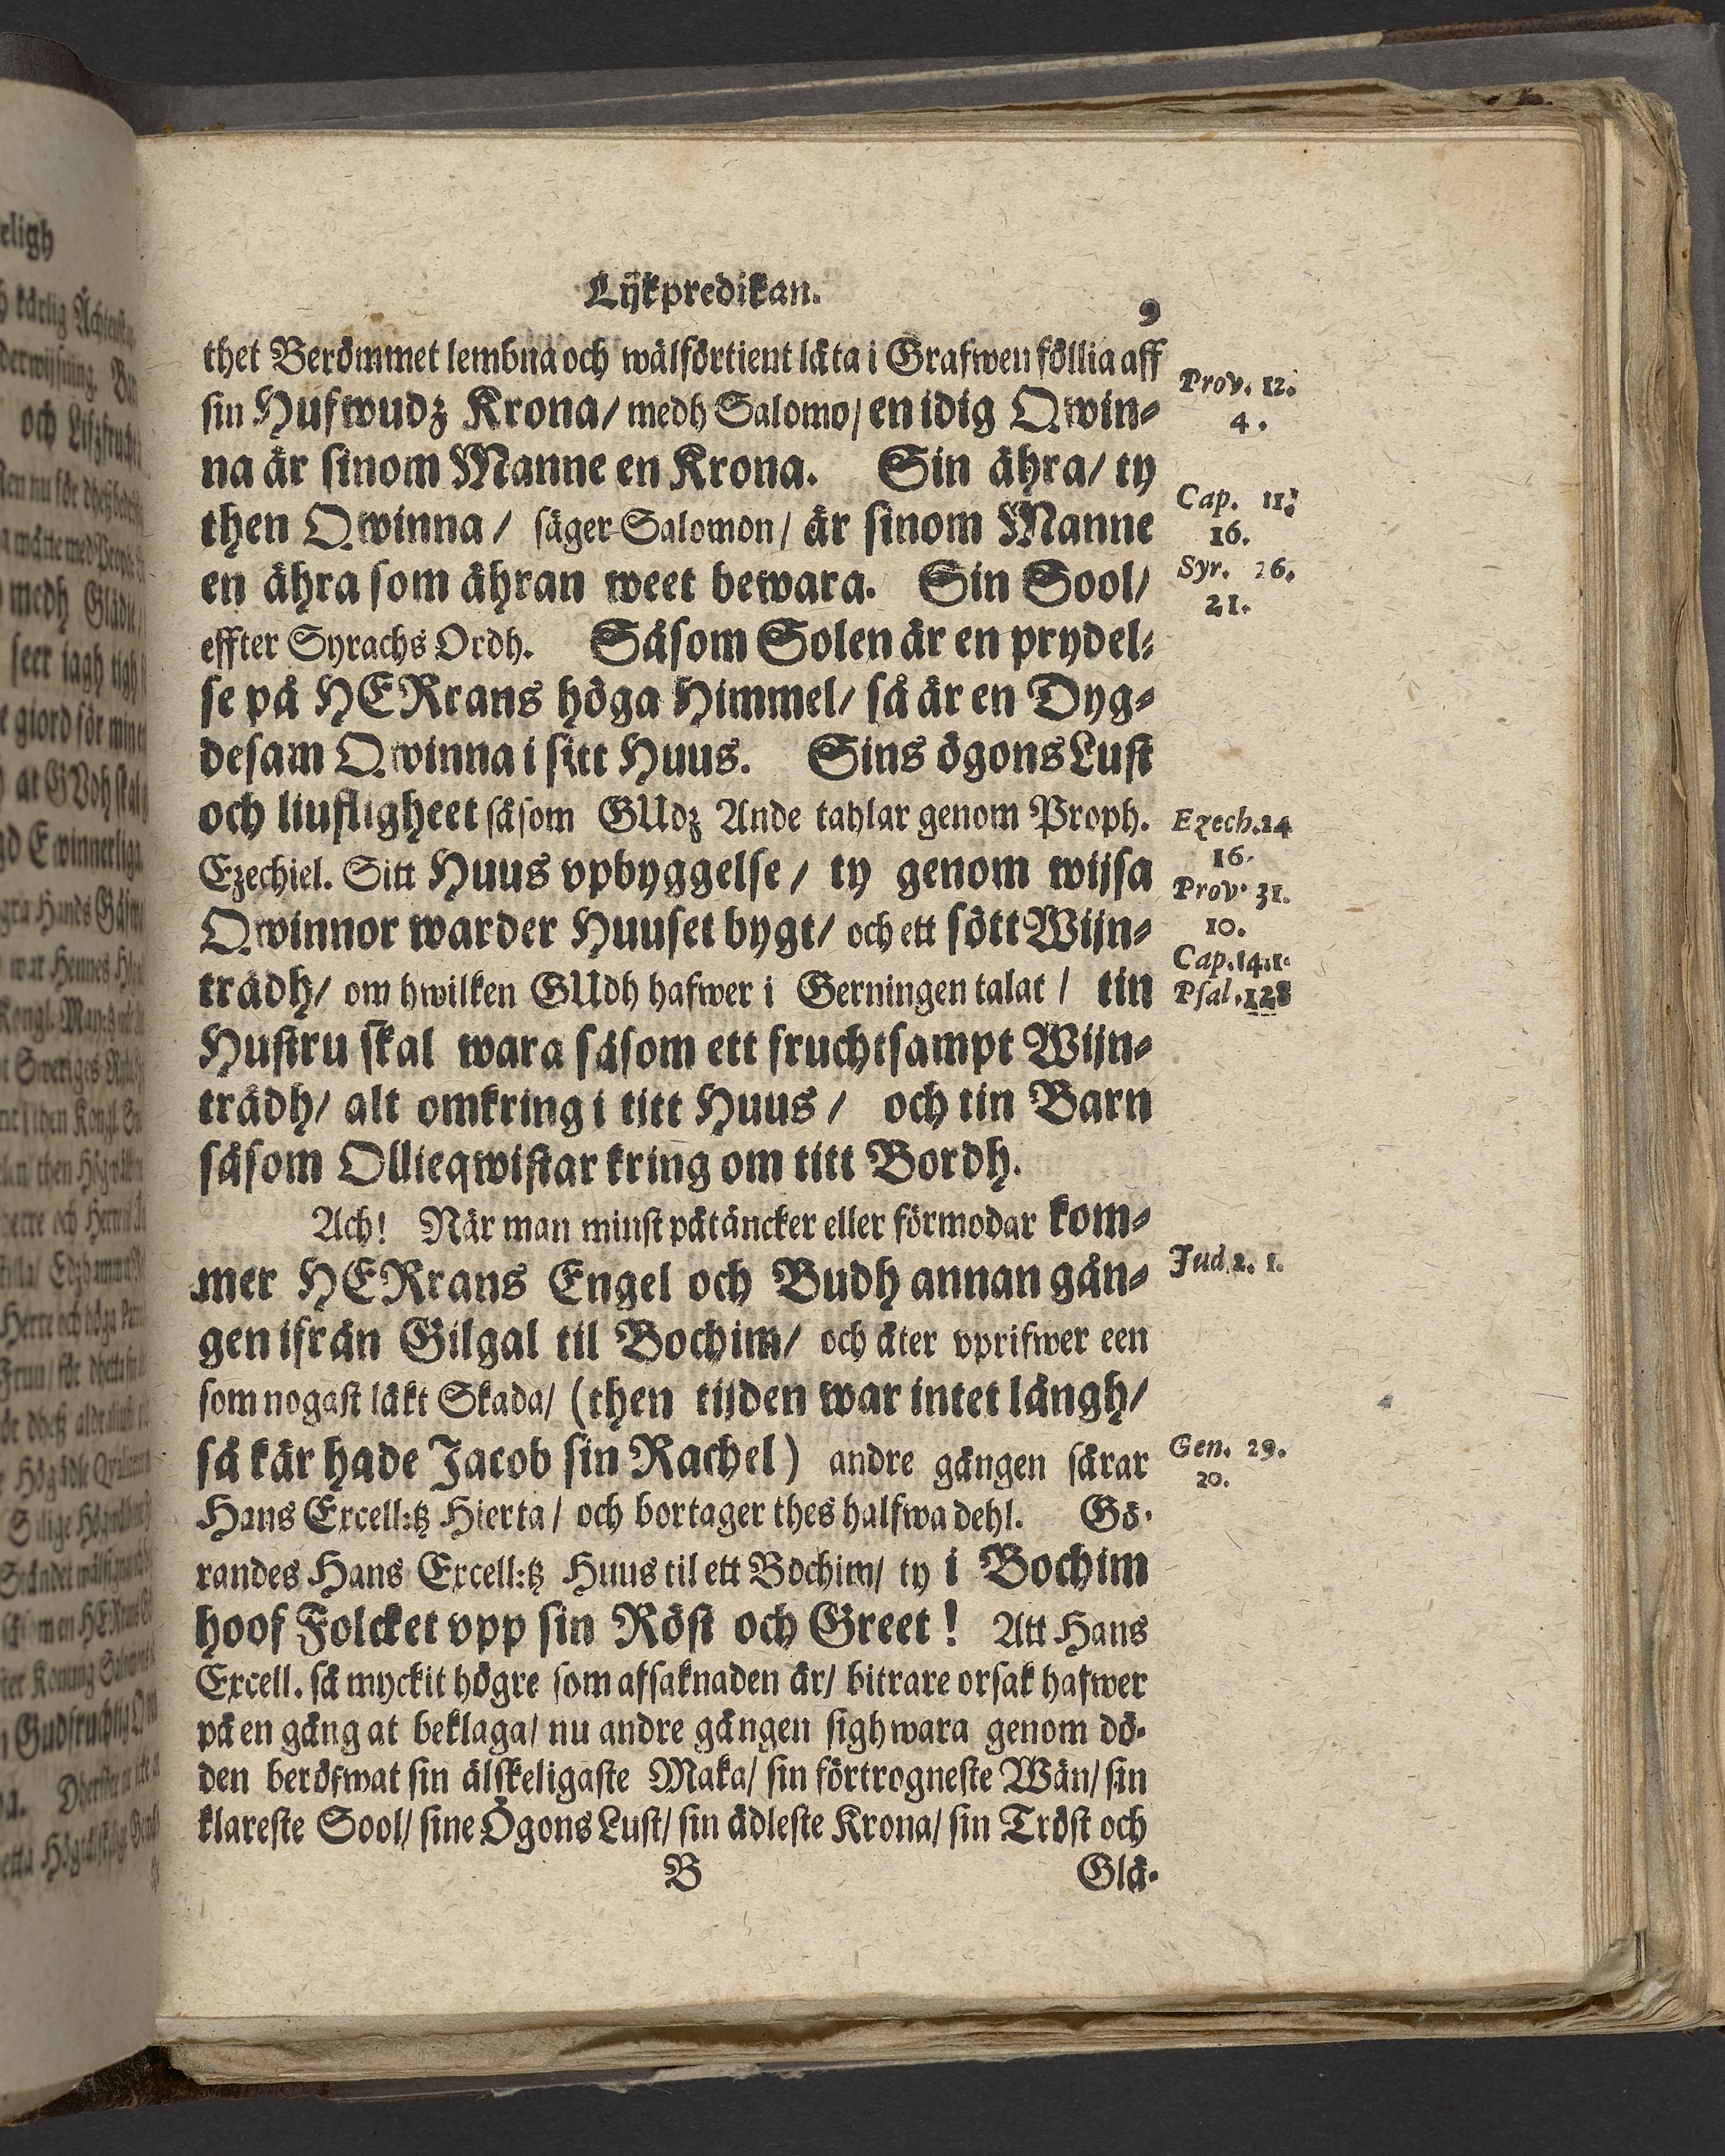 Lijkpredikan.
9
thet Berömmet lembna och wälförtient låta i Grafwen föllia aff
sin Hufwudz Krona/ medh Salomo/ en idig Qwin-
na är sinom Manne en Krona. Sin ähra/ ty
then Qwinna / säger Salomon/ är sinom Manne
en ähra som ähran weet bewara. Sin Sool/
effter Syrachs Ordh. Såsom Solen är en prydel-
se på HERrans höga Himmel/ så är en Dyg-
desam Qwinna i sitt Huus. Sins ögons Lust
och liufligheet såsom GUdz Ande tahlar genom Proph.
Ezechiel. Sitt Huus vpbyggelse / ty genom wijsa
Qwinnor warder Huuset bygt/ och ett sött Wijn-
trädh/ om hwilken GUdh hafwer i Gerningen talat / tin
Hustru skal wara såsom ett fruchtsampt Wijn-
trädh/ alt omkring i titt Huus / och tin Barn
såsom Ollieqwistar kring om titt Bordh.
Ach! När man minst påtäncker eller förmodar kom-
mer HERrans Engel och Budh annan gån-
gen ifrån Gilgal til Bochim/ och åter vprifwer een
som nogast läkt Skada/ (then tijden war intet långh/
så kär hade Jacob sin Rachel) andre gången sårar
Hans Excell:tz Hierta / och bortager thes halfwa dehl. Gö-
randes Hans Excell:tz Huus til ett Bochim/ ty i Bochim
hoof Folcket vpp sin Röst och Greet! Att Hans
Excell. så myckit högre som afsaknaden är/ bitrare orsak hafwer
på en gång at beklaga/ nu andre gången sigh wara genom dö-
den beröfwat sin älskeligaste Maka/ sin förtrogneste Wän/ sin
klareste Sool/ sine Ögons Lust/ sin ädleste Krona/ sin Tröst och
B
Glä-
Prov. 12.
4.
Cap. 11:
16.
Syr. 26.
21.
Ezech. 24
16.
Prov. 31.
10.
Cap. 14. 1.
Psal. 128
Jud. 2. 1.
Gen. 29.
20.